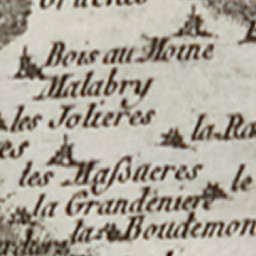 Bois au Moine
Malabry
les Jolieres
la Ra
es
les Maßueres
le
la Grandeniere
la Boudemon